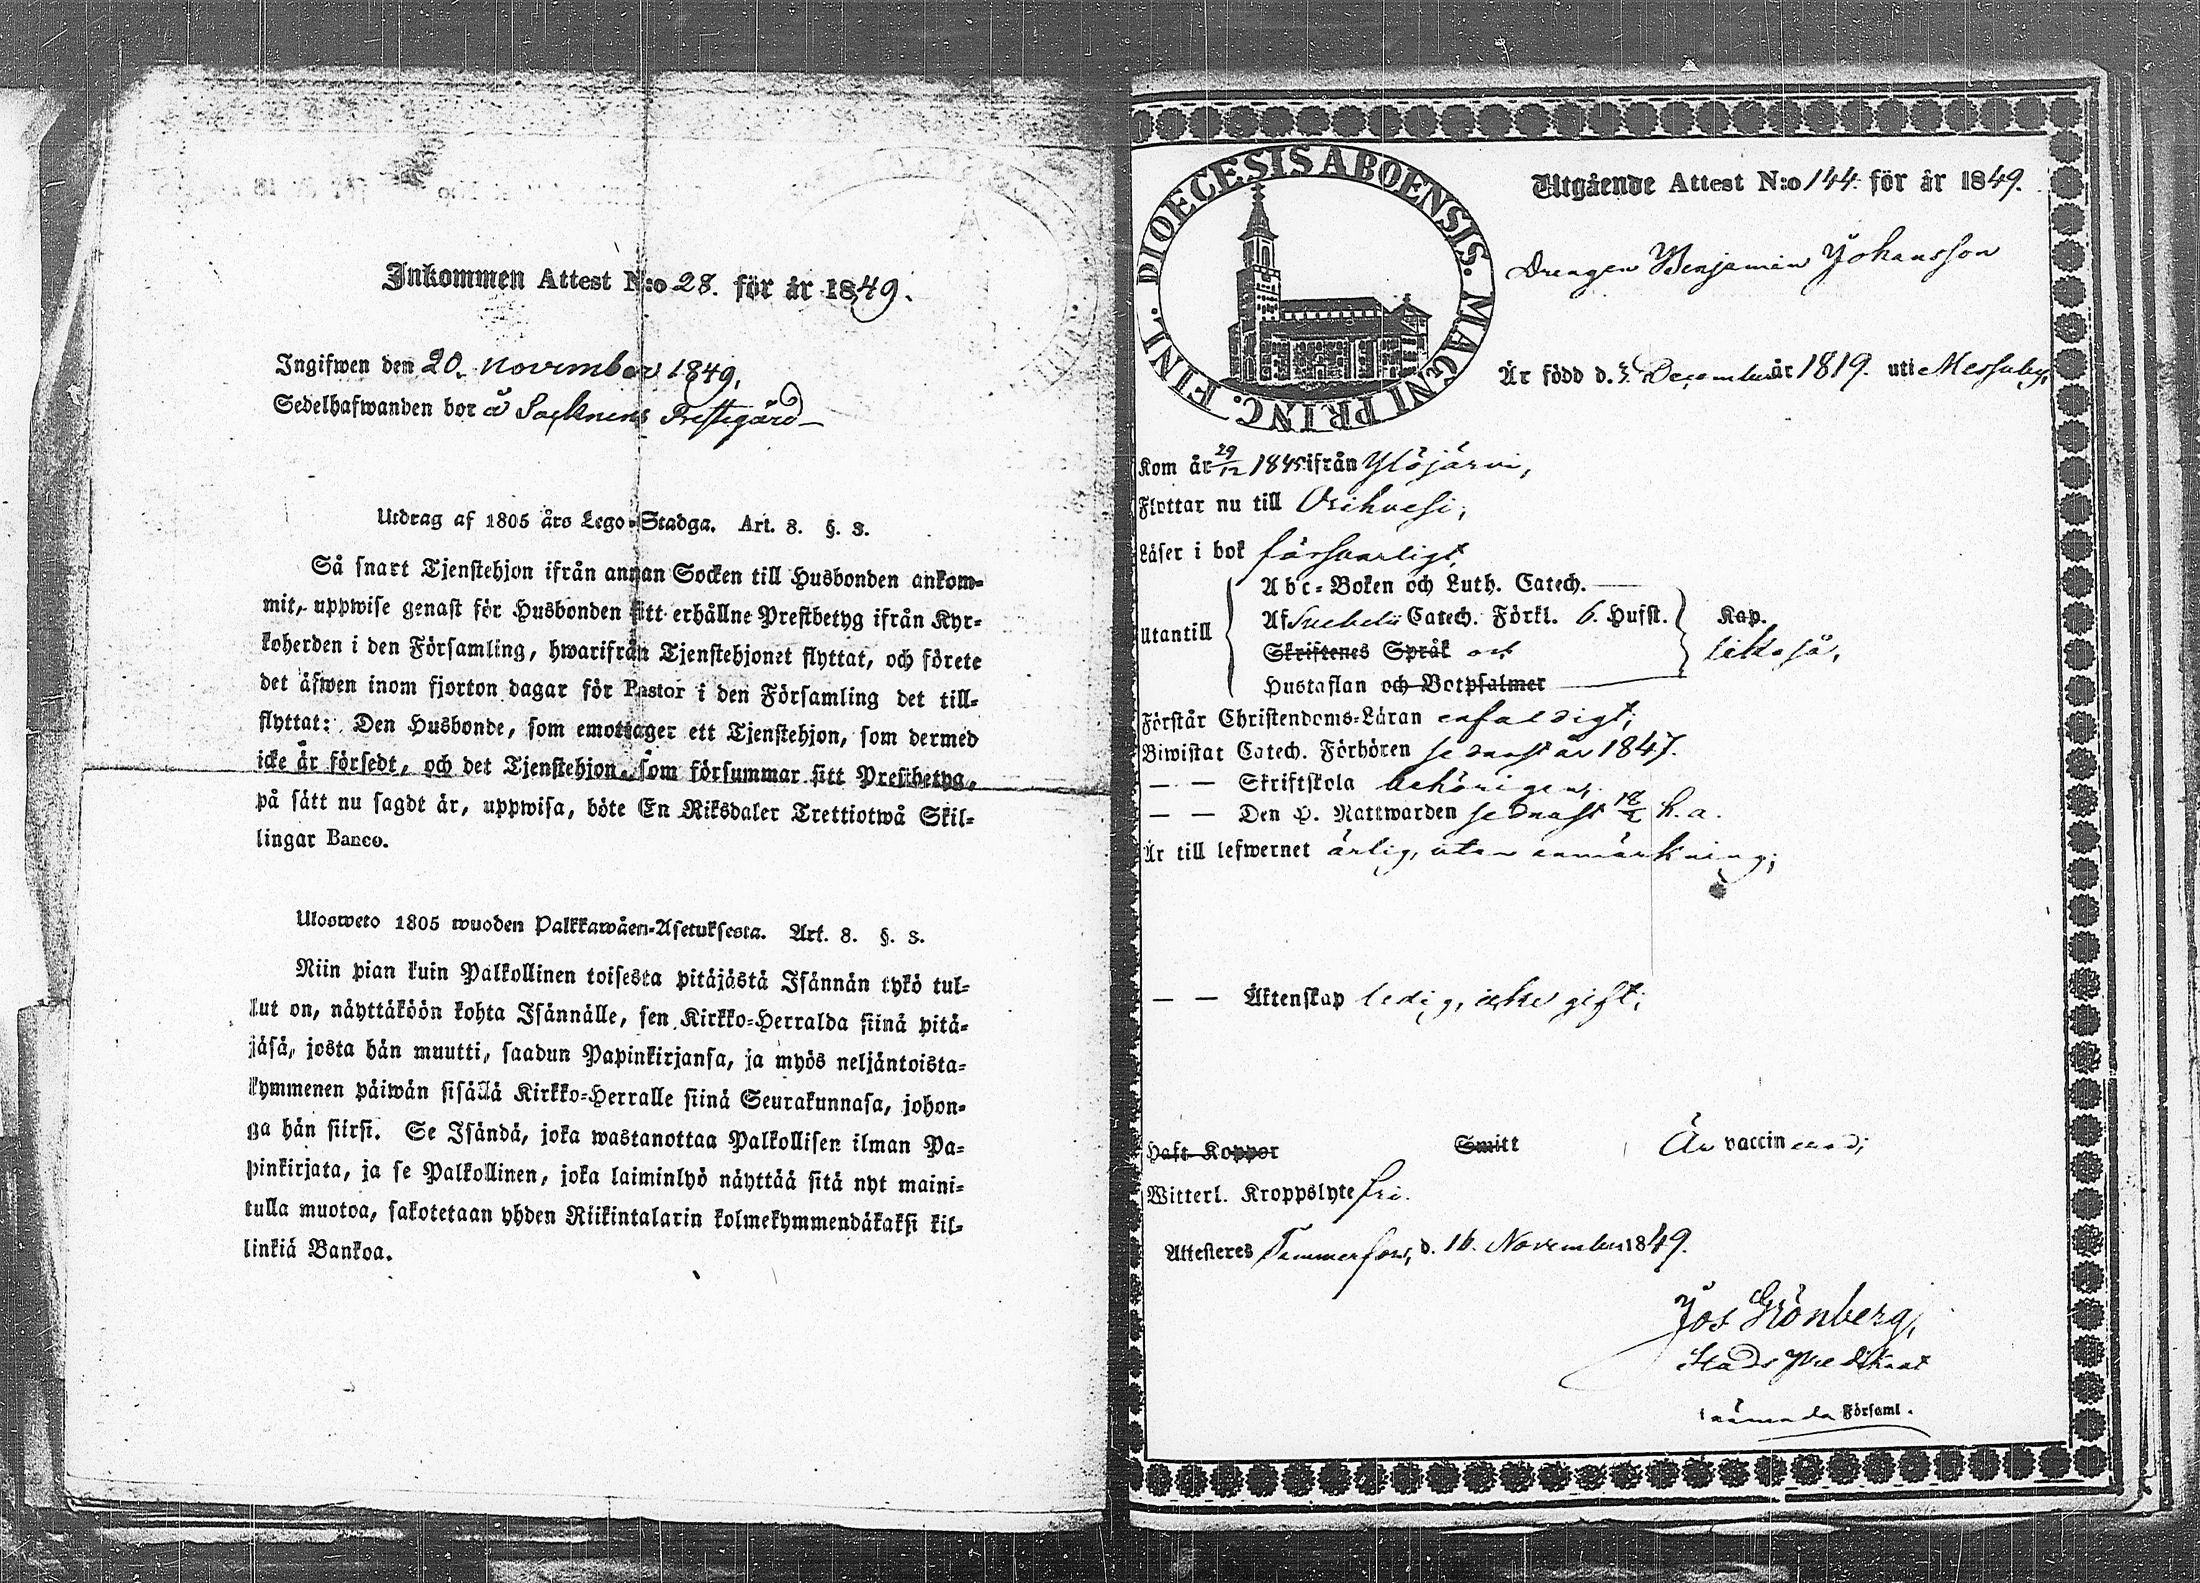 Inkommen Attest N:o 28. för år 1849.
Ingifwen den 20. november 1849.
Sedelhafwanden bor å Socknens Prestegård
Utdrag af 1805 års Lego-Stadga. Art. 8. §. 3.
Så snart Tjenstehjon ifrån annan Socken till Husbonden ankom-
mit, uppwise genast för Husbonden sitt erhållne Prestbetyg ifrån Kyr-
koherden i den Församling, hwarifrån Tjenstehjonet flyttat, och förete
det äfwen inom fjorton dagar för Pastor i den Församling det till-
flyttat: Den Husbonde, som emottager ett Tjenstehjon, som dermed
icke är försedt, och det Tjenstehjon, som försummar sitt Prestbetyg,
på sätt nu sagdt är, uppwisa, böte En Riksdaler Trettiotwå Skil-
lingar Banco.
Ulosweto 1805 wuoden Palkkawäen-Asetuksesta. Art. 8. §. 3.
Niin pian kuin Palkollinen toisesta pitäjästä Isännän tykö tul-
lut on, näyttäköön kohta Isännälle, sen Kirkko-Herralda siinä pitä-
jäsä, josta hän muutti, saadun Papinkirjansa, ja myös neljäntoista-
kymmenen päiwän sisällä Kirkko-Herralle siinä Seurakunnasa, johon-
ga hän siirsi. Se Isändä, joka wastanottaa Palkollisen ilman Pa-
pinkirjata, ja se Palkollinen, joka laiminlyö näyttää sitä nyt maini-
tulla muotoa, sakotetaan yhden Riikintalarin kolmekymmendäkaksi kil-
linkiä Bankoa.
DIOECESIS ABOENSIS. MAGNI PRINC. FINL.
Utgående Attest N:o 144. för år 1849.
Drengen Benjamin Johansson
Är född d. 3. December år 1819. uti Messuby,
Kom år 29/12 1845 ifrån Ylöjärvi,
Flyttar nu till Orihvesi,
Läser i bok försvarligt,
Utantill
Abc-Boken och Luth. Catech.
Af Svebelii Catech. Förkl. 6. Hufst. Kap.
Skriftenes Språk och likaså,
Hustaflan och Botpsalmer
Förstår Christendoms-Läran enfaldigt,
Biwistat Catech. Förhören sednast år 1847.
— — Skriftskola behörigen,
— — Den H. Nattwarden sednast h. a.
Är till lefwernet ärlig, utan anmärkning;
— — Äktenskap ledig, icke gift;
Haft Koppor Smitt Är vaccinerad;
Witterl. Kroppslyte fri.
Attesteres Tammerfors, d. 16. November 1849.
Jos Grönberg,
Stads Predikant
Församl.